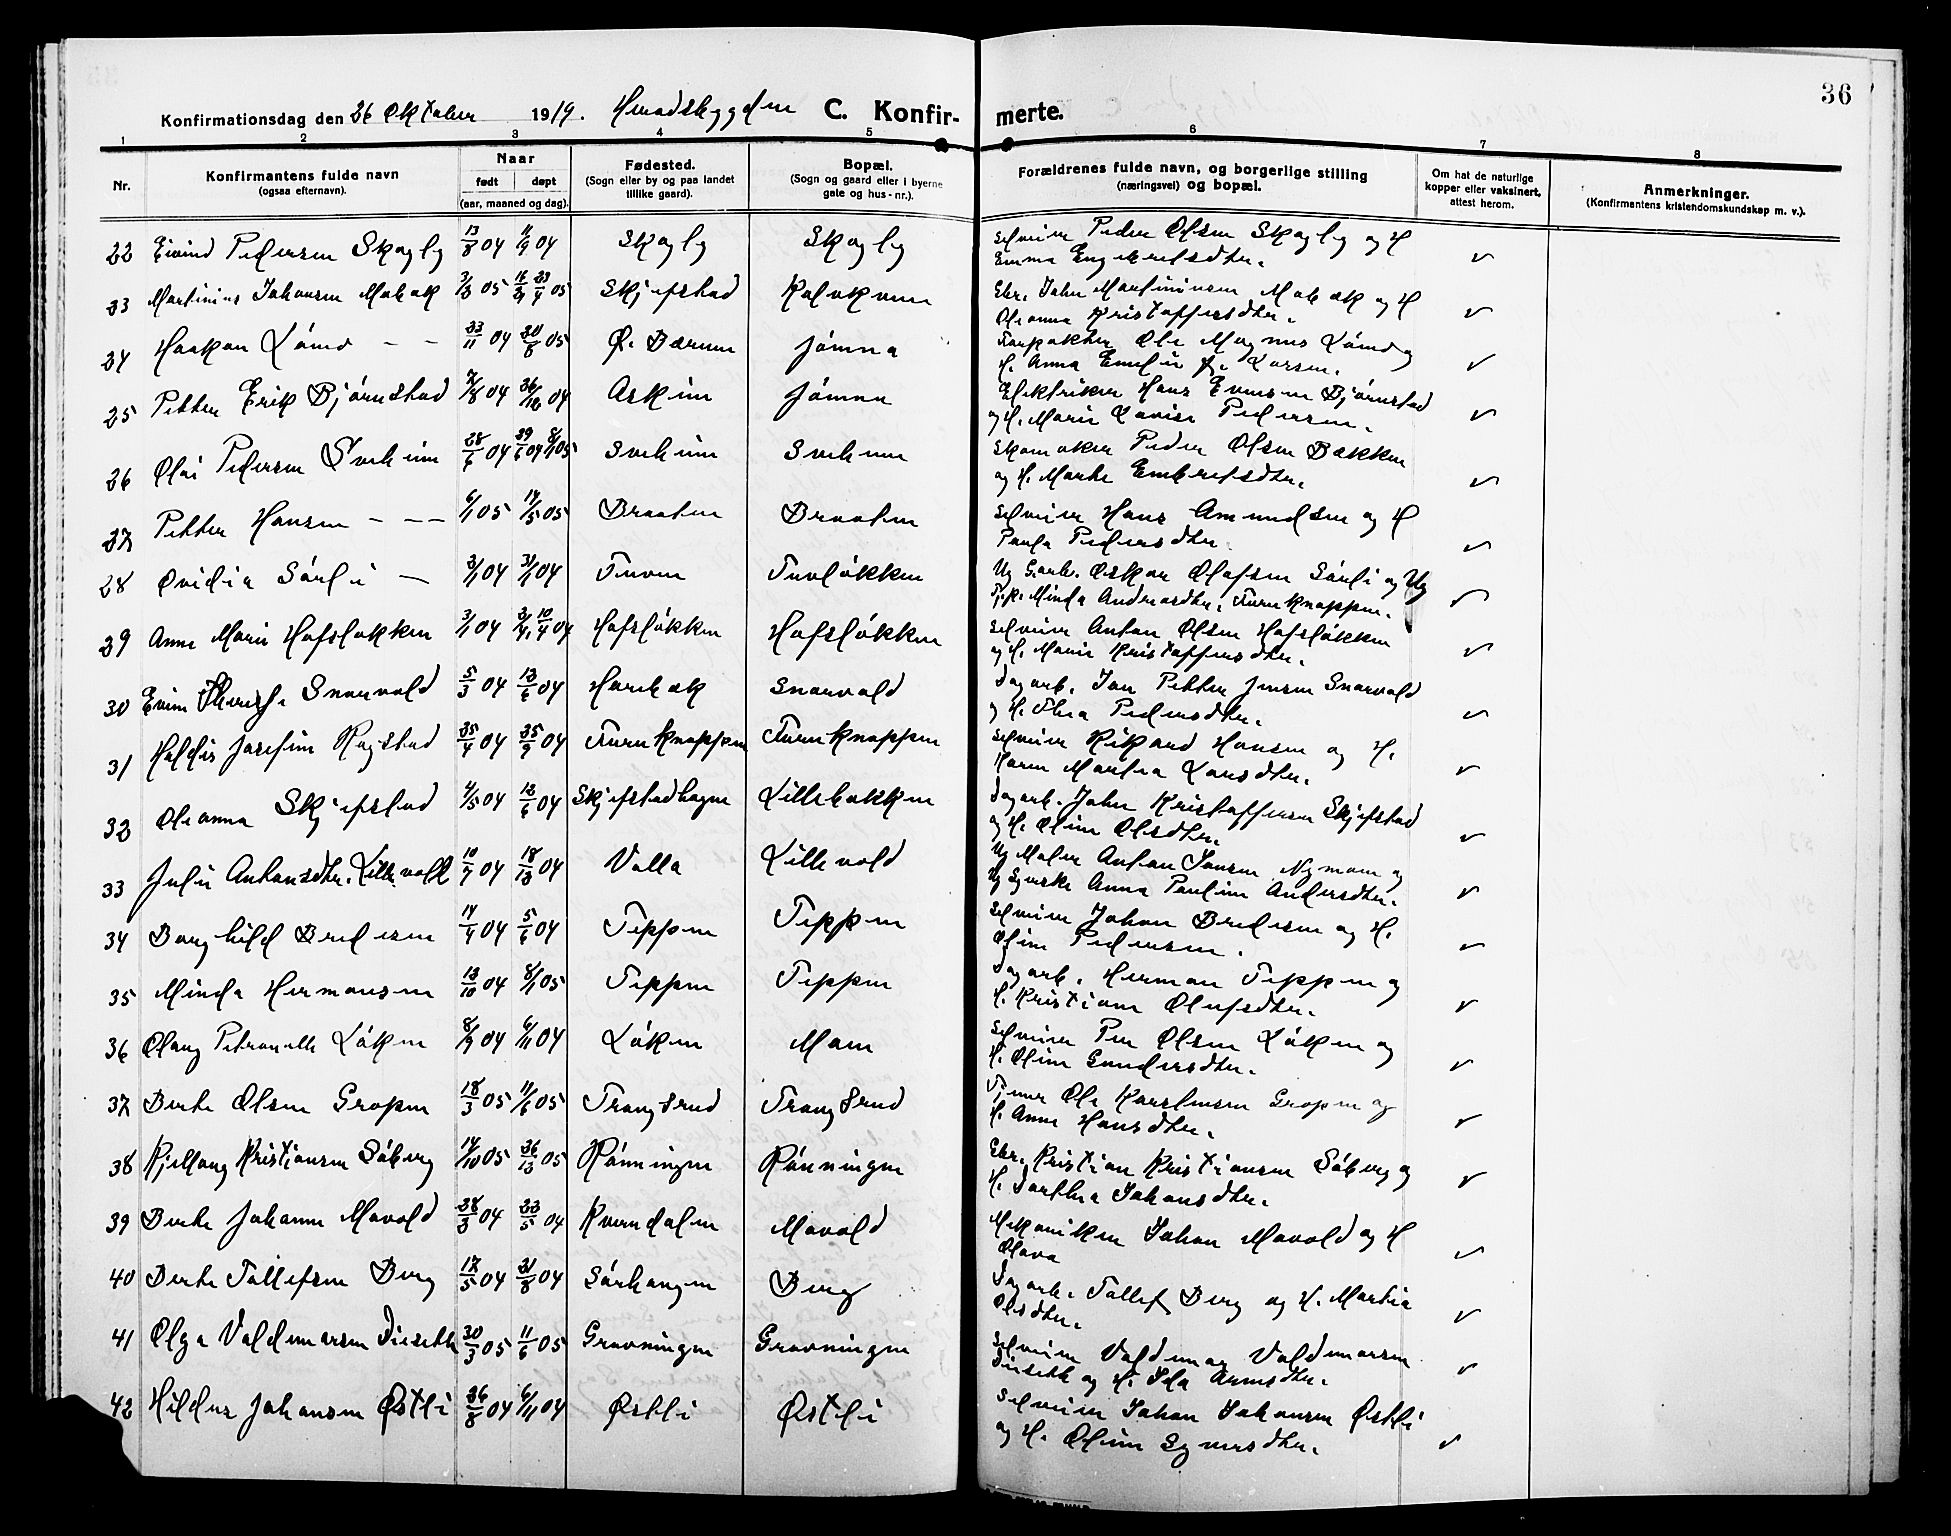 36
Konfirmationsdag den 26 Oktober 1919. Heradsbygden C. Konfir- merte.
1 2 3 4 5 6 7 8
Nr.
Konfirmantens fulde navn
(ogsaa efternavn).
Naar
født døpt
(aar, maaned og dag).
Fødested.
(Sogn eller by og paa landet
tillike gaard).
Bopæl.
(Sogn og gaard eller i byerne
gate og hus-nr.).
Forældrenes fulde navn, og borgerlige stilling
(næringsvei) og bopæl.
Om hat de naturlige
kopper eller vaksinert,
attest herom.
Anmerkninger.
(Konfirmantens kristendomskundskap m. v.).
22 Eivind Pedersen Skogly 13/8 04 11/9 04 Skogly Skogly Selveier Peder Olsen Skogly og H
Emma Engebretsdter. v
23 Martinius Johansen Mobæk 05 05 Skjefstad Kalvkven Gbr. Johan Martiniusen Mobæk og H
Oleanna Kristoffersdter. v
24 Haakon Lömo - - 23/11 04 05 Ø. Bærum Jömna Forpakter Ole Magnus Lömo og
H. Anna Emelie f. Larsen. v
25 Petter Erik Bjørnstad 04 26/12 04 Askim Jömna Elektriker Hans Evensen Bjørnstad
og H. Marie Lovise Pedersen. v
26 Olai Pedersen Sveheim 28/6 04 29/6 04 8/1 05 Sveheim Sveheim Skomaker Peder Olsen Bækken
og H. Marte Embretsdter. v
27 Petter Hansen - - - 6/1 05 14/5 05 Braaten Braaten Selveier Hans Amundsen og H
Paula Pedersdter. v
28 Ovidia Sörli - 3/1 04 31/1 04 Tuven Tuvlökken Ug Garb. Oskar Olafsen Sörli og Ug
Tj.p. Minda Andreasdter. Furuknappen. v
29 Anne Marie Hofslökken 3/1 04 10/4 04 Hofslökken Hofslökken Selveier Anton Olsen Hofslökken
og H. Marie Kristoffersdter. v
30 Snarvold 5/3 04 12/6 04 Harebæk Snarvold Dagarb. Jon Petter Jensen Snarvold
og H. Thea Pedersdter. v
31 Haldis Josefine Rogstad 25/4 04 25/9 04 Furuknappen Furuknappen Selveier Rikard Hansen og H.
Karen Martea Larsdter. v
32 Oleanna Skjefstad 4/5 04 12/6 04 Skjefstadhagen Lillebakken Dagarb. John Kristoffersen Skjefstad
og H. Oline Olsdter. v
33 Julie Antonsdter. Lillevold 10/7 04 18/12 04 Valla Lillevold Ug Maler Anton Jonsen Nymoen og
Ug Syerske Anna Pauline Andersdter. v
34 Borghild Bredesen 14/4 04 5/6 04 Teppen Teppen Selveier Johan Bredesen og H.
Oline Pedersen. v
35 Minda Hermansen 12/10 04 8/1 05 Teppen Teppen Dagarb. Herman Teppen og
H. Kristiane Olufsdter. v
36 Olaug Petronelle Löken 8/9 04 6/11 04 Löken Moen Selveier Per Olsen Löken og
H. Oline Gundersdter. v
37 Berte Olsen Gropen 18/3 05 11/6 05 Trangsrud Trangsrud Tjener Ole Karelinsen Gropen og
H. Anne Hansdter. v
38 Kjellaug Kristiansen Söberg 14/10 05 26/12 05 Rönningen Rönningen Gbr. Kristian Kristiansen Söberg og
H. Dorthea Johansdter. v
39 Berte Johanne Movold 28/3 04 22/5 04 Kverndalen Movold Mekaniker Johan Movold og H
Olava v
40 Berte Tollefsen Berg 17/5 04 21/8 04 Sörhaugen Berg Dagarb. Tollef Berg og H. Martea
Olsdter. v
41 Olga Valdemarsen Dieseth 30/3 05 11/6 05 Gravningen Gravningen Selveier Valdemar Valdemarsen
Dieseth og H. Ida Arnesdter. v
42 Hildur Johansen Østli 26/8 04 6/11 04 Østli Østli Selveier Johan Johansen Østli
og H. Oline Syversdter. v